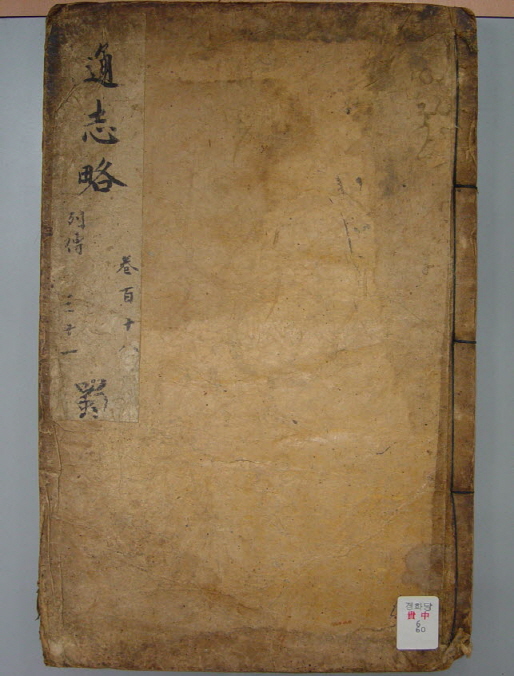 通志略
卷百十八
列傳
三十一
蜀
貴中
6
60